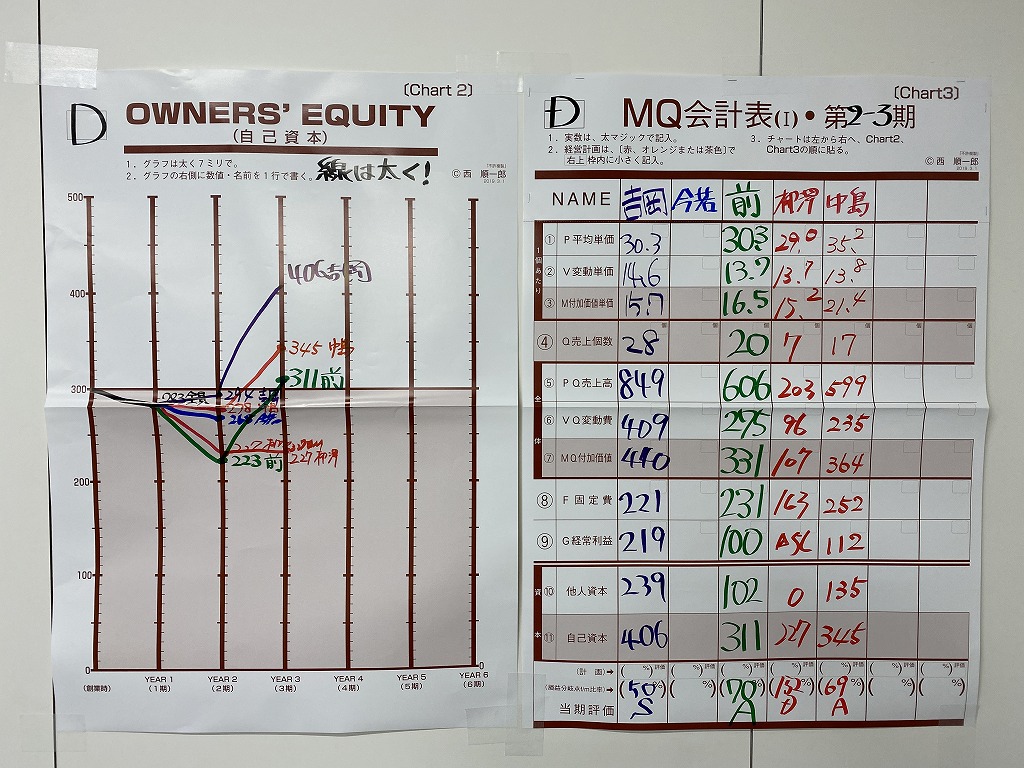 (Chart 2)
D
OWNERS' EQUITY
(自己資本)
1. グラフは太く7ミリで。
2. グラフの右側に数値・名前を1行で書く。
線は太く!
©西 順一郎
500
400
300
200
100
0
0
406吉岡
345 中島
311前
283全員
294 吉岡
223前
227柳澤
(創業時)
YEAR 1
(1期)
YEAR 2
(2期)
YEAR 3
(3期)
YEAR 4
(4期)
YEAR 5
(5期)
YEAR 6
(6期)
(Chart3)
D
MQ会計表(I)・第2-3期
1. 実数は、太マジックで記入。
2. 経営計画は、(赤、オレンジまたは茶色)で
右上枠内に小さく記入。
3. チャートは左から右へ、Chart2、
Chart3の順に貼る。
©西 順一郎
NAME 吉岡 今若 前 柳澤 中島
1個あたり
① P平均単価 30.3 30.3 29.0 35.2
② V変動単価 14.6 13.7 13.7 13.8
③ M付加価値単価 15.7 16.5 15.2 21.4
④ Q売上個数 28 20 7 17
全体
⑤ PQ売上高 849 606 203 599
⑥ VQ変動費 409 275 96 235
⑦ MQ付加価値 440 331 107 364
⑧ F固定費 221 231 163 252
⑨ G経常利益 219 100 112
資本
⑩ 他人資本 239 102 0 135
⑪ 自己資本 406 311 227 345
(計画)→ ( %) 評価 ( %) 評価 ( %) 評価 ( %) 評価 ( %) 評価 ( %) 評価 ( %) 評価
(損益分岐点f/m比率)→ (50%) ( %) (70%) (152%) (69%) ( %) ( %)
当期評価 S A D A